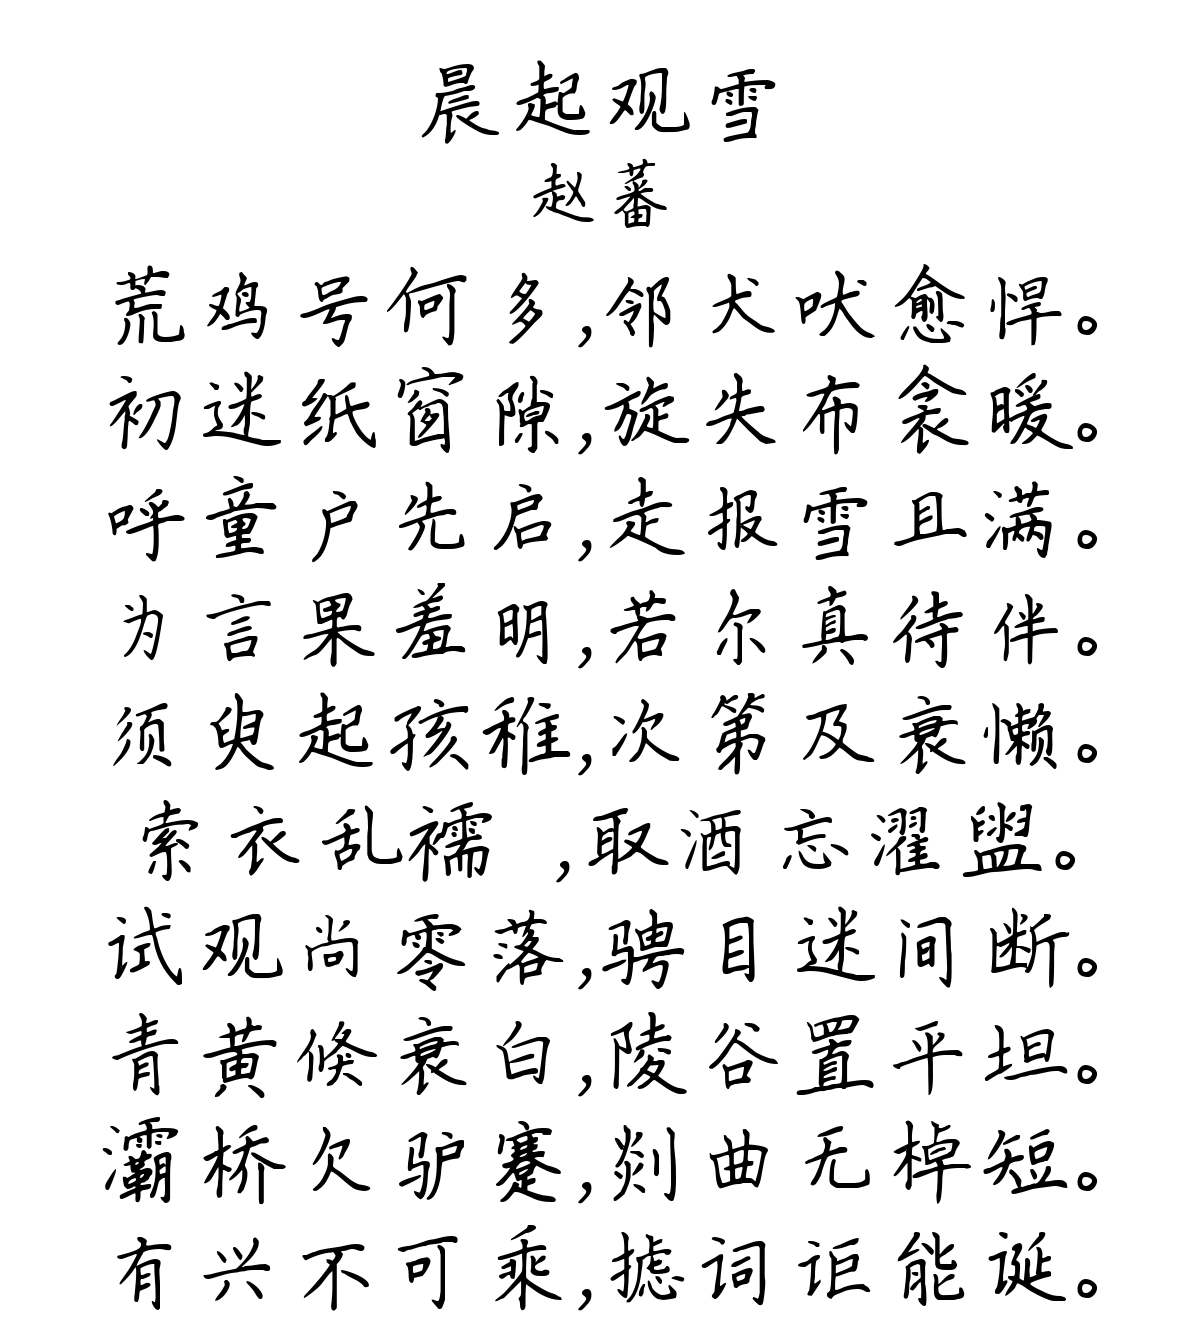 晨起观雪
赵蕃
荒鸡号何多,邻犬吠愈悍。
初迷纸窗隙,旋失布衾暖。
呼童户先启,走报雪且满。
为言果羞明,若尔真待伴。
须臾起孩稚,次第及衰懒。
索衣乱襦 ,取酒忘濯盥。
试观尚零落,骋目迷间断。
青黄倏衰白,陵谷置平坦。
灞桥欠驴蹇,剡曲无棹短。
有兴不可乘,摅词讵能诞。